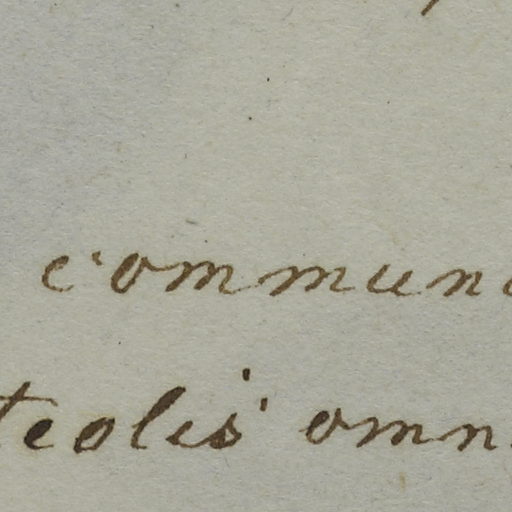 commun
teolis omn